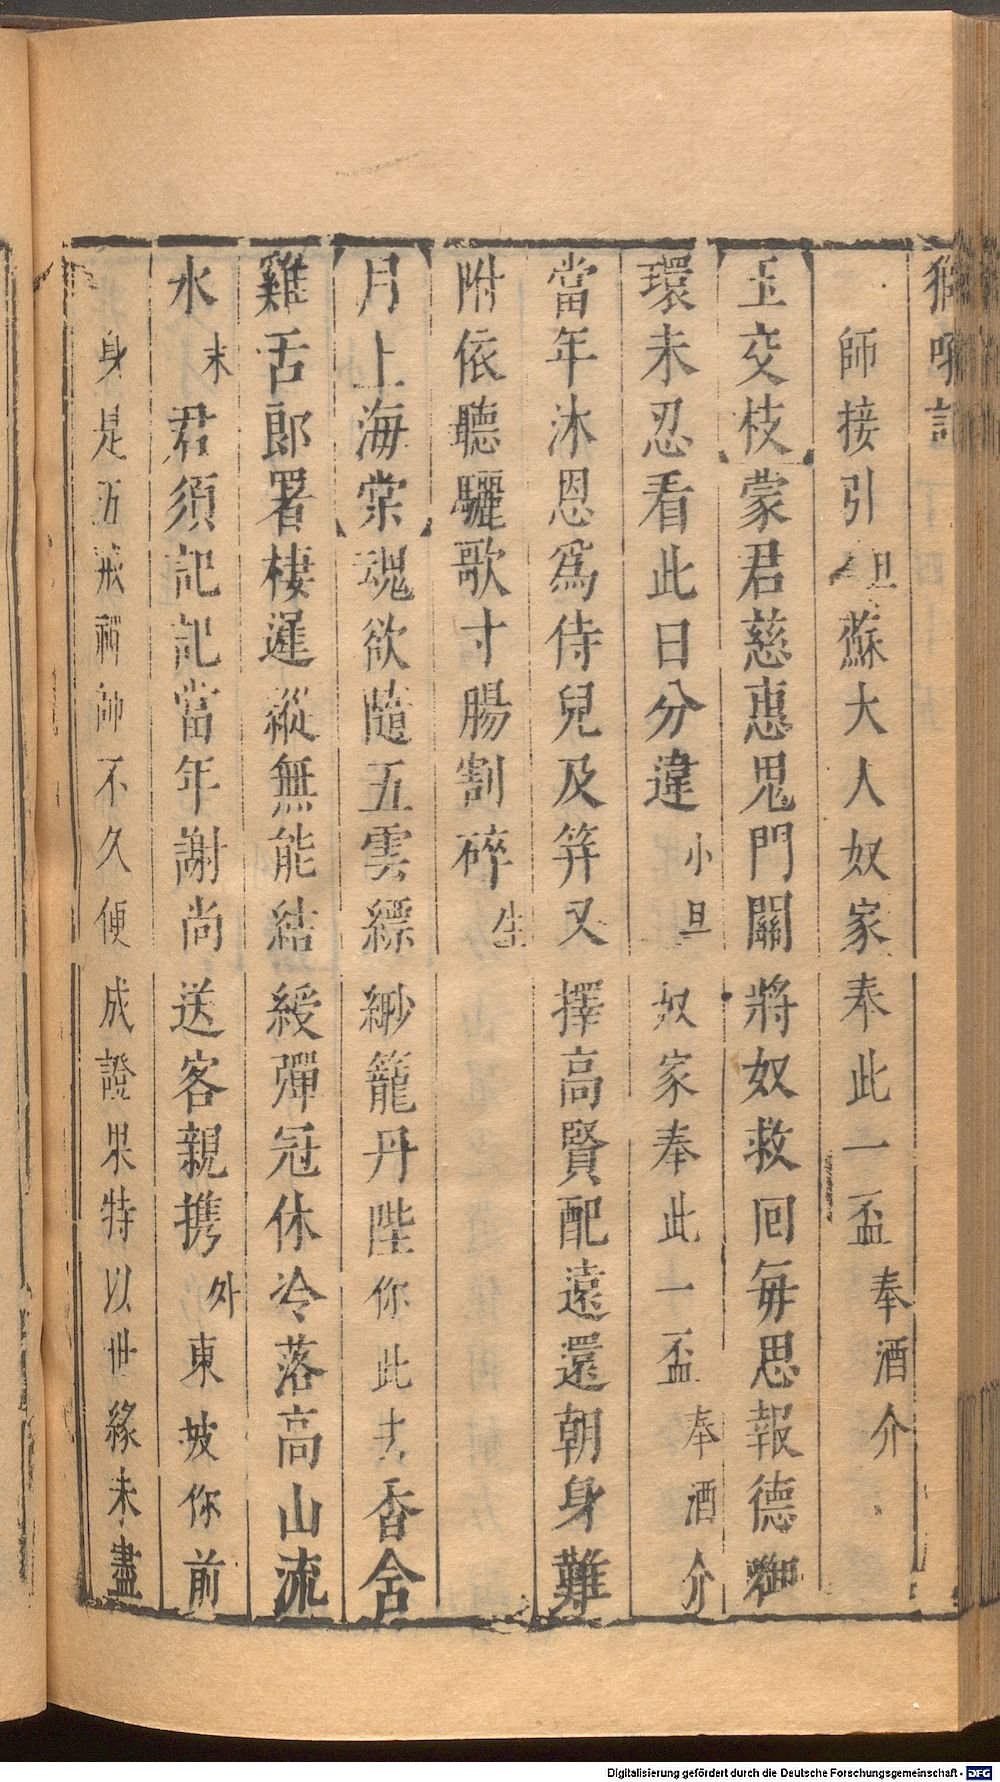 獅吼記
師接引旦蘇大人奴家奉此一盃奉酒介
玉交枝蒙君慈惠鬼門關將奴救回每思報德啣
環未忍看此日分違小旦奴家奉此一盃奉酒介
當年沐恩爲侍兒及笄又擇高賢配遠還朝身難
附依聽驪歌寸腸割碎生
月上海棠魂欲隨五雲縹緲籠丹陛你此去香含
雞舌郎署棲遲縱無能結綬彈冠休冷落高山流
水末君須記記當年謝尚送客親携外東坡你前
身是五戒禪師不久便成證果特以世緣未盡
Digitalisierung gefördert durch die Deutsche Forschungsgemeinschaft - DFG